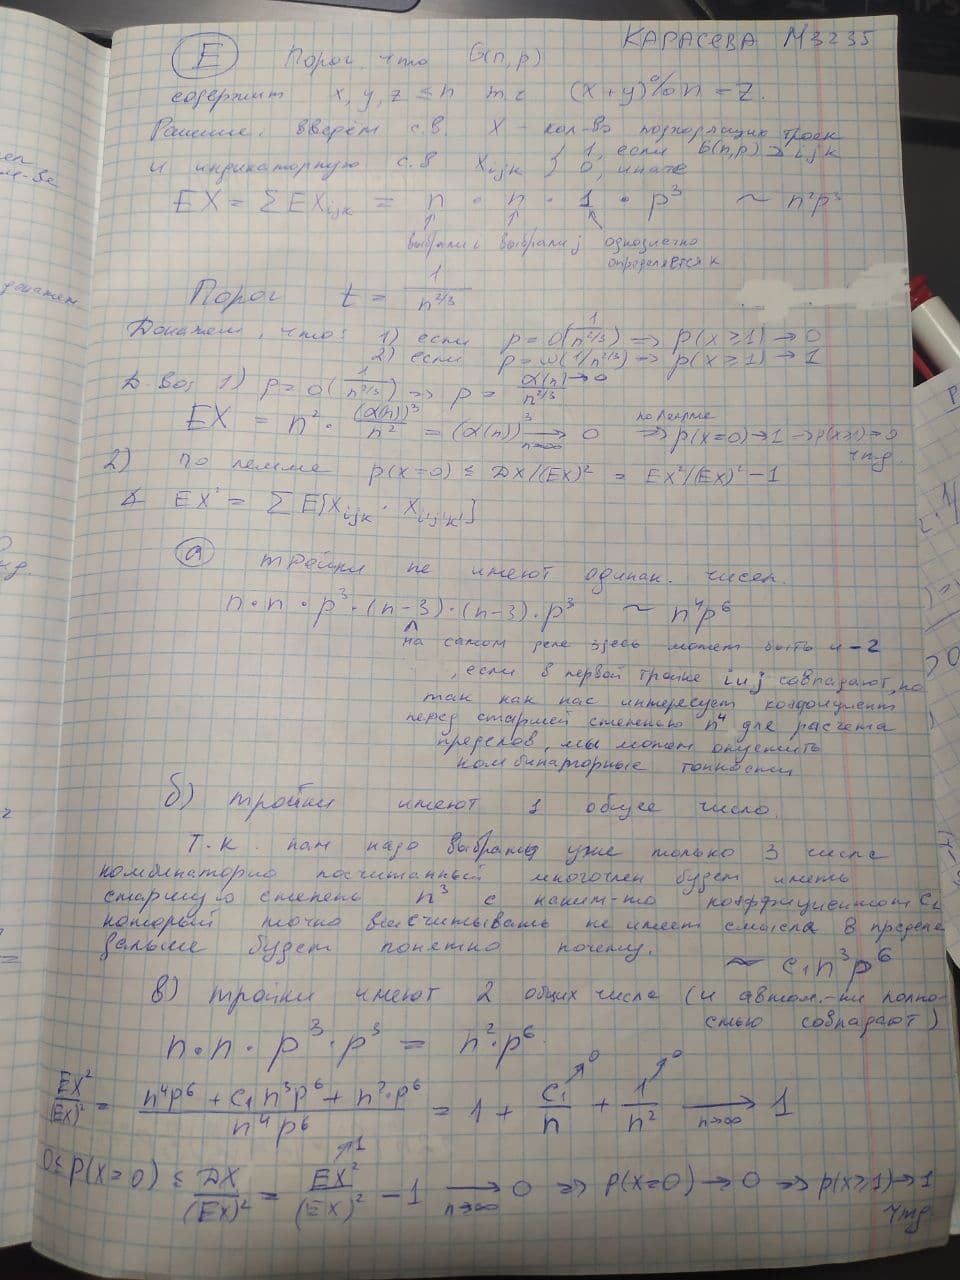 КАРАСЕВА М3235
E Порог, что G(n,p)
содержит x, y, z ≤ n т.ч (x+y)%n = z.
Решение: введём с.в. X - кол-во подходящих троек
и индикаторную с.в X_ijk { 1, если G(n,p) ∋ ijk
0, иначе
EX = ΣEX_ijk = n · n · 1 · p³ ~ n²p³
выбрали i выбрали j однозначно
определяется k
Порог t = 1/n^(2/3)
Докажем, что: 1) если p = o(1/n^(2/3)) => p(x≥1) → 0
2) если p = ω(1/n^(2/3)) => p(x≥1) → 1
Д-во: 1) p = o(1/n^(2/3)) => p = α(n)→0/n^(2/3)
EX = n² · (α(n))³/n² = (α(n))³ →(n→∞) 0 по лемме => p(x=0)→1 => p(x≥1)→0
чтд.
2) по лемме p(x=0) ≤ DX/(EX)² = EX²/(EX)² - 1
∢ EX² = Σ E[X_ijk · X_i'j'k']
а тройки не имеют одинак. чисел.
n·n·p³·(n-3)·(n-3)·p³ ~ n⁴p⁶
на самом деле здесь может быть n-2
, если в первой тройке i и j совпадают, но
так как нас интересует коэффициент
перед старшей степенью n⁴ для расчета
пределов, мы можем опустить
комбинаторные тонкости
б) тройки имеют 1 общее число.
Т.к. нам надо выбрать уже только 3 числа
комбинаторно посчитанный многочлен будет иметь
старшую степень n³ с каким-то коэффициентом c₁
который точно высчитывать не имеет смысла в пределе
дальше будет понятно почему.
~ c₁n³p⁶
в) тройки имеют 2 общих числа (и автом.-ки полно-
стью совпадают)
n·n·p³·p³ = n²·p⁶
EX²/(EX)² = (n⁴p⁶ + c₁n³p⁶ + n²·p⁶)/n⁴p⁶ = 1 + c₁/n→0 + 1/n²→0 →(n→∞) 1
0≤p(x=0) ≤ DX/(EX)² = EX²/(EX)²→1 - 1 →(n→∞) 0 => p(x=0)→0 => p(x≥1)→1
чтд